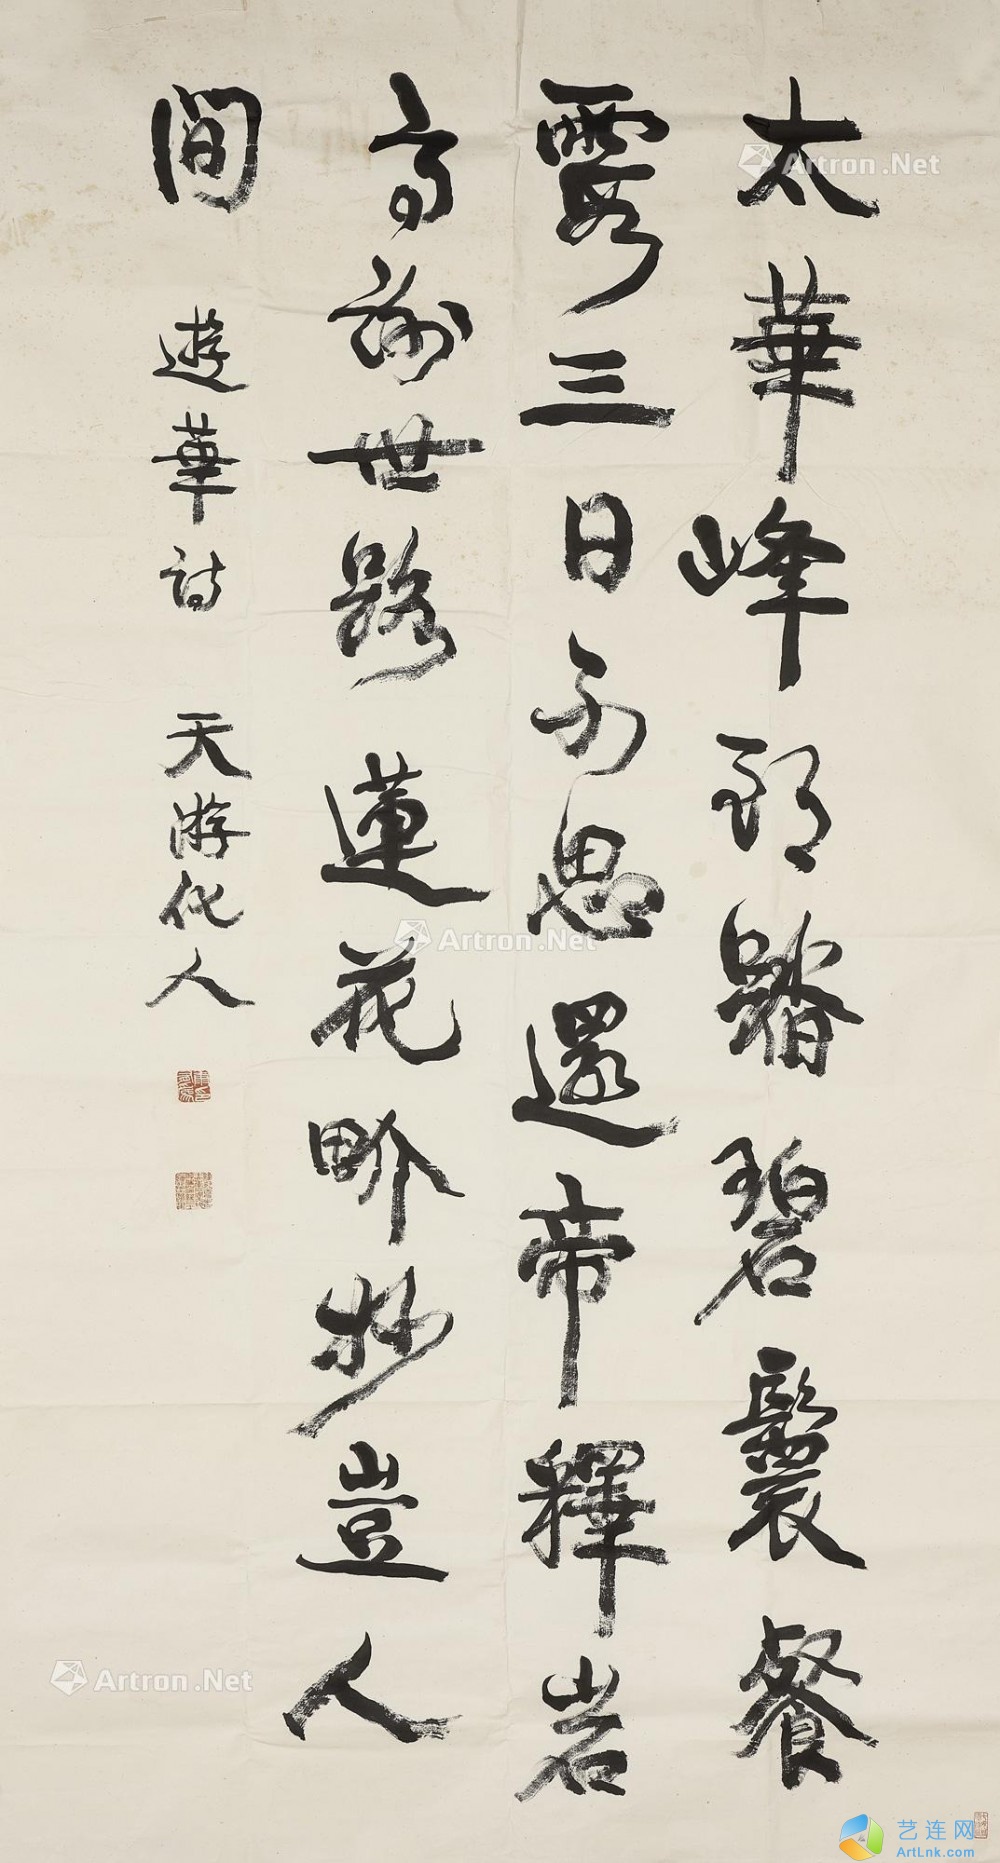 太華峰頭踏碧鬟餐
霞三日不思還帝釋岩
高謝世路蓮花界妙豈人
間
遊華詩
天游化人
Artron.Net
Artron.Net
Artron.Net
艺连网
ArtLnk.com